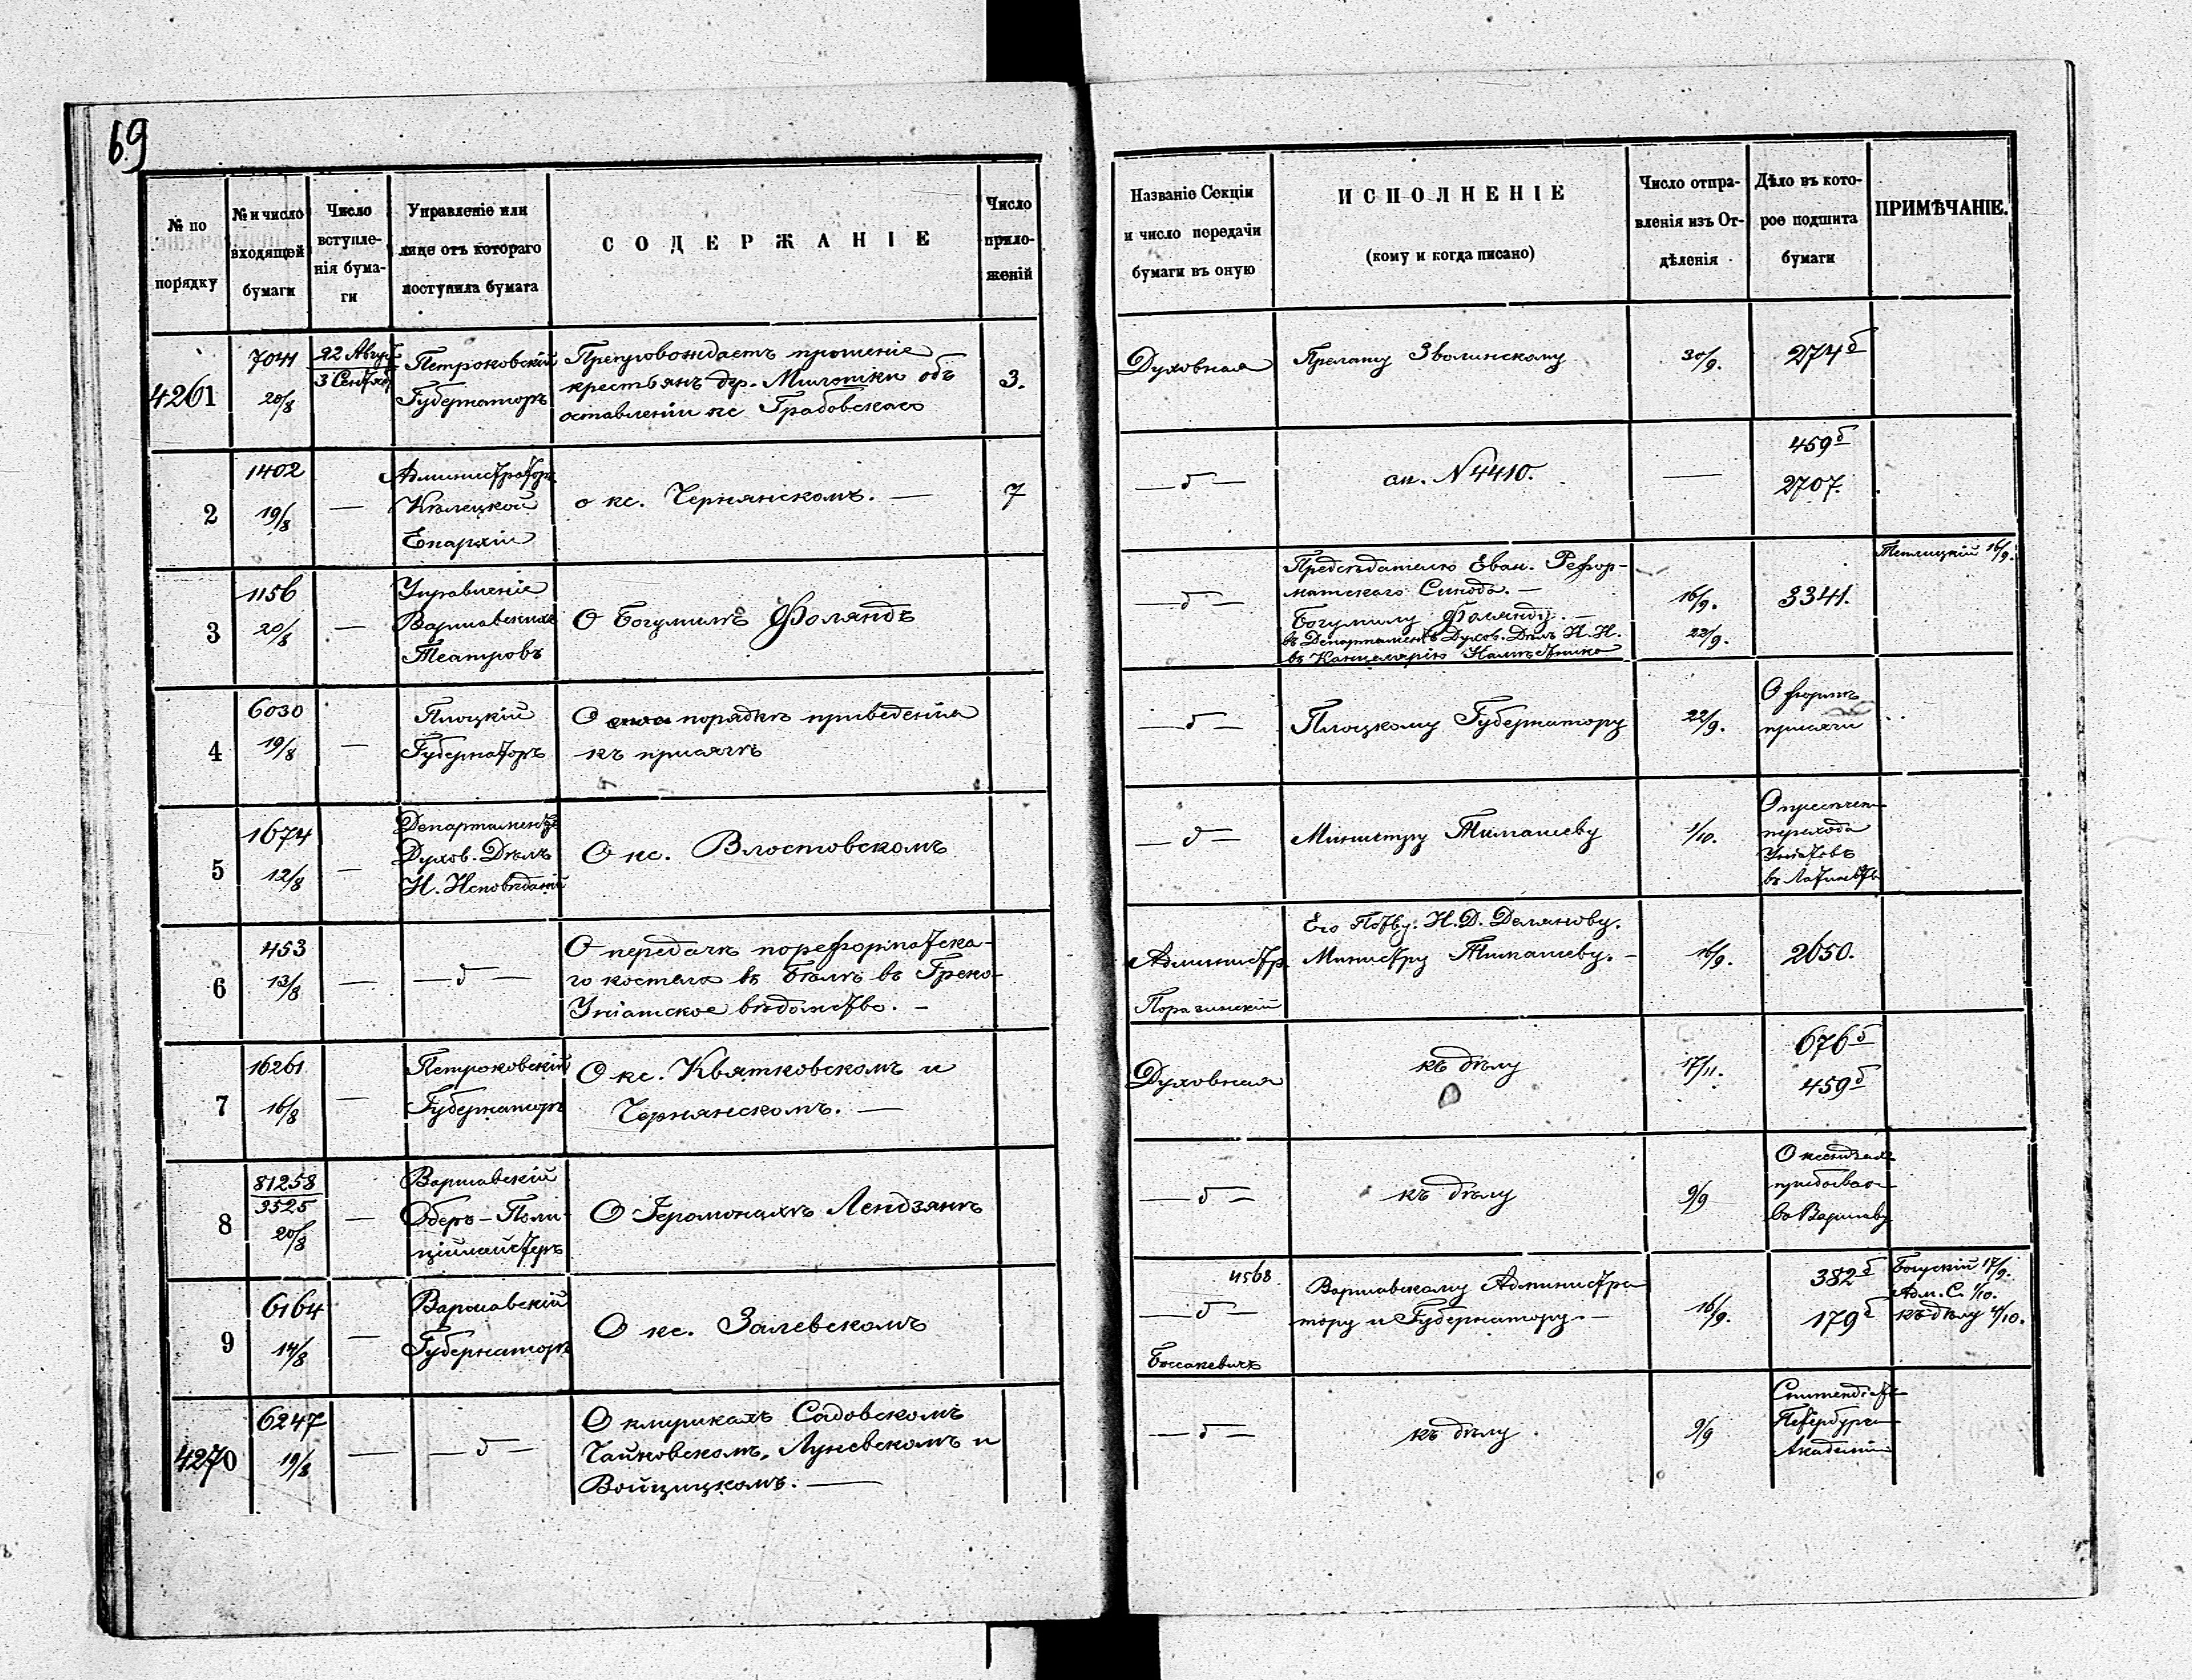 69
№ по порядку
№ и число входящей бумаги
Число вступле-нія бума-ги
Управленіе или лице отъ котораго поступила бумага
СОДЕРЖАНІЕ
Число прило-женій
Названіе Секціи и число передачи бумаги въ оную
ИСПОЛНЕНІЕ
(кому и когда писано)
Число отпра-вленія изъ От-дѣленія
Дѣло въ кото-рое подшита бумаги
ПРИМѢЧАНІЕ.
4261
7041
20/8
22 Август
3 Сентяб
Петроковскій
Губернаторъ
Препровождаетъ прошеніе
крестьянъ дер. Милотки объ
оставленіи кс Грабовскаго
3.
Духовная
Прелату Зволинскому
30/9.
274 б
2
1402
19/8
—
Администраторъ
Кѣлецкой
Епархіи
о кс. Чернянскомъ. —
7
— д —
см. N 4410.
—
459 б
2707.
3
1156
20/8
—
Управленіе
Варшавскихъ
Театровъ
О Богумилѣ Фоляндъ
— д —
Предсѣдателю Еван. Рефор-
матскаго Синода. —
Богумилу Фолянду. —
въ Департаментъ Духов. Дѣлъ И. И.
въ Канцелярію Намѣстника
16/9.
22/9.
3341.
16/9.
4
6030
19/8
—
Плоцкій
Губернаторъ
О порядкѣ приведенія
къ присягѣ
— д —
Плоцкому Губернатору
22/9.
О формѣ
присяги
5
1674
12/8
—
Департаментъ
Духов. Дѣлъ
И. Исповѣданій
О кс. Влостовскомъ
— д —
Министру Тимашеву
1/10.
О пресѣчен
перехода
Уніатовъ
въ Латинство
6
453
13/8
—
— д —
О передачѣ пореформатска-
го костела въ Бѣлѣ въ Греко-
Уніатское вѣдомство. —
Администр.
Порагинскій
Его Пр-тву. И. Д. Делянову.
Министру Тимашеву. —
16/9.
2650.
7
16261
16/8
—
Петроковскій
Губернаторъ
О кс. Квятковскомъ и
Чернянскомъ. —
Духовная
къ дѣлу
17/11.
676 б
459 б
8
81258
3525
20/8
—
Варшавскій
Оберъ-Поли-
ціймайстеръ
О Іеромонахѣ Лендзянѣ
— д —
къ дѣлу
9/9
О ксендзахъ
прибывао
въ Варшаву
9
6164
14/8
—
Варшавскій
Губернаторъ
О кс. Залевскомъ
4568.
— д —
Боссакевичъ
Варшавскому Администра
тору и Губернатору. —
16/9.
382 б
179 б
Богускій 17/9.
Адм. С. 1/10.
къ дѣлу 4/10.
4270
6247
19/8
—
— д —
О клирикахъ Садовскомъ
Чайковскомъ, Луневскомъ и
Войцицкомъ. —
— д —
къ дѣлу.
9/9
Стипендіаты
Петербургс
Академіи